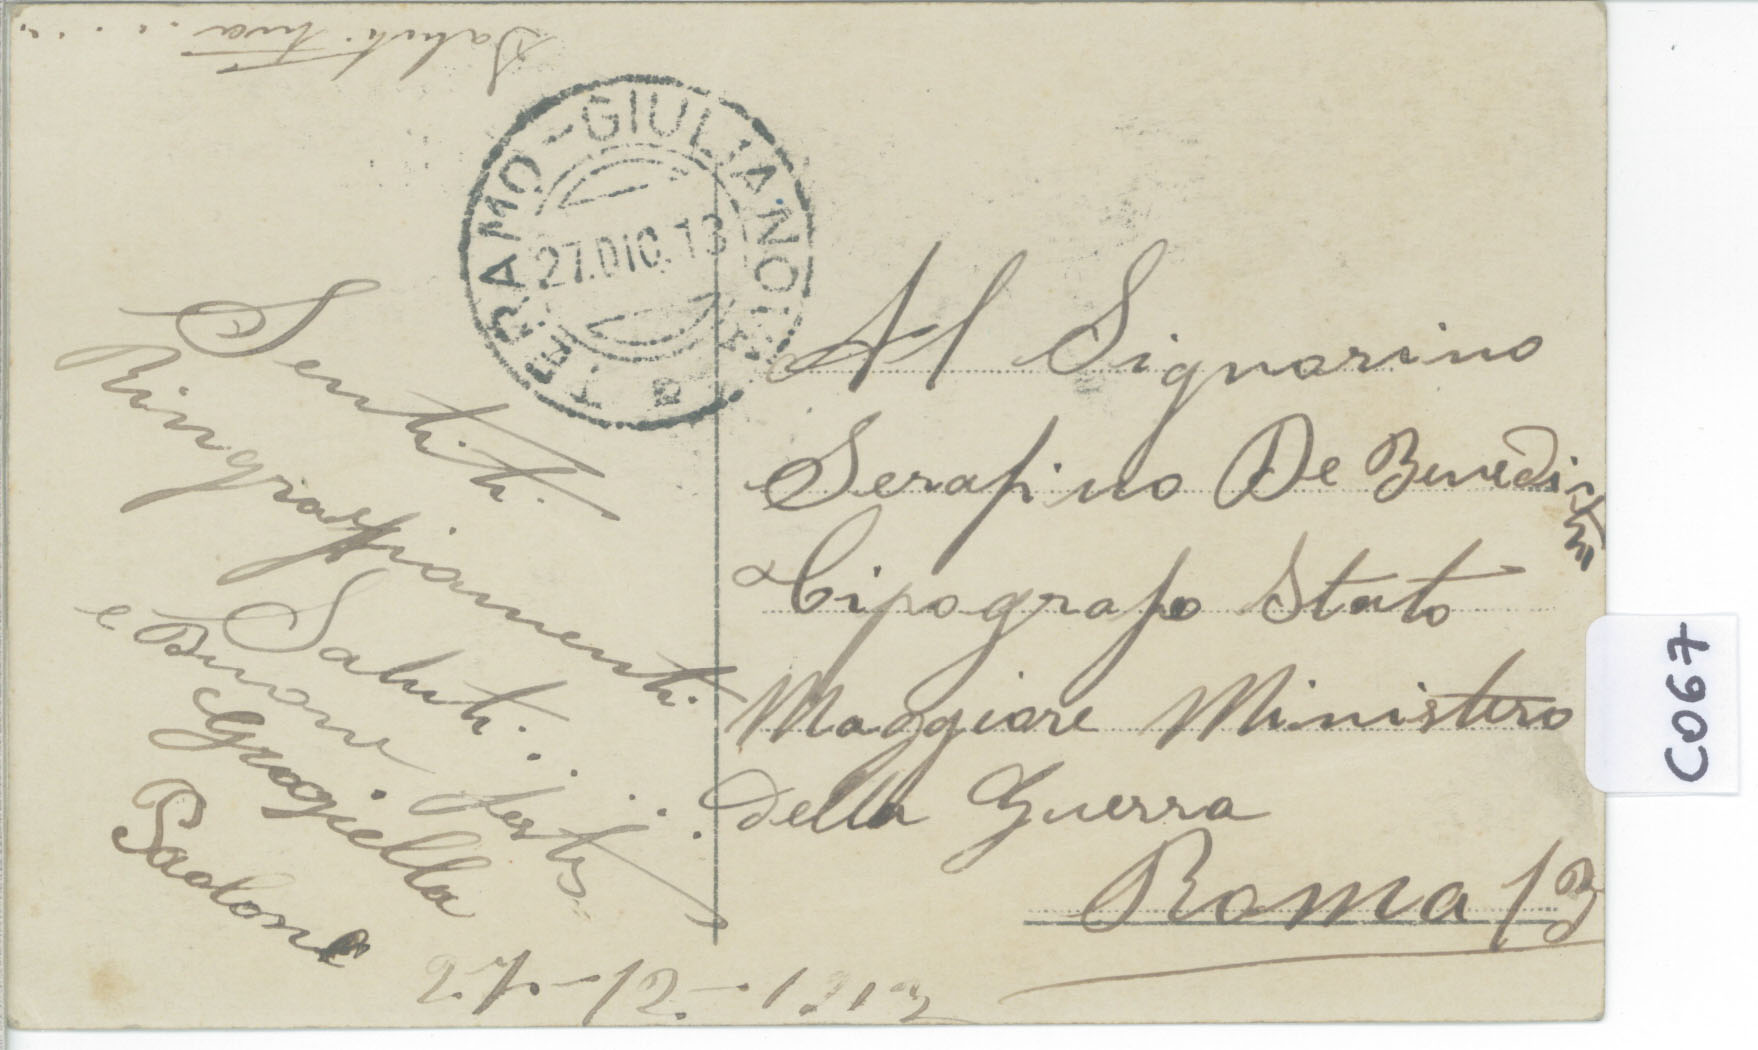 Saluti Tua . . . . .
TERAMO-GIULIANOVA
27.DIC.13
2
Sentiti
Ringraziamenti
Saluti. . . . .
e Buone feste
Graziella
Paolone
27-12-1913
Al Signorino
Serafino De Benedictis
Tipografo Stato
Maggiore Ministero
della Guerra
Roma
C067